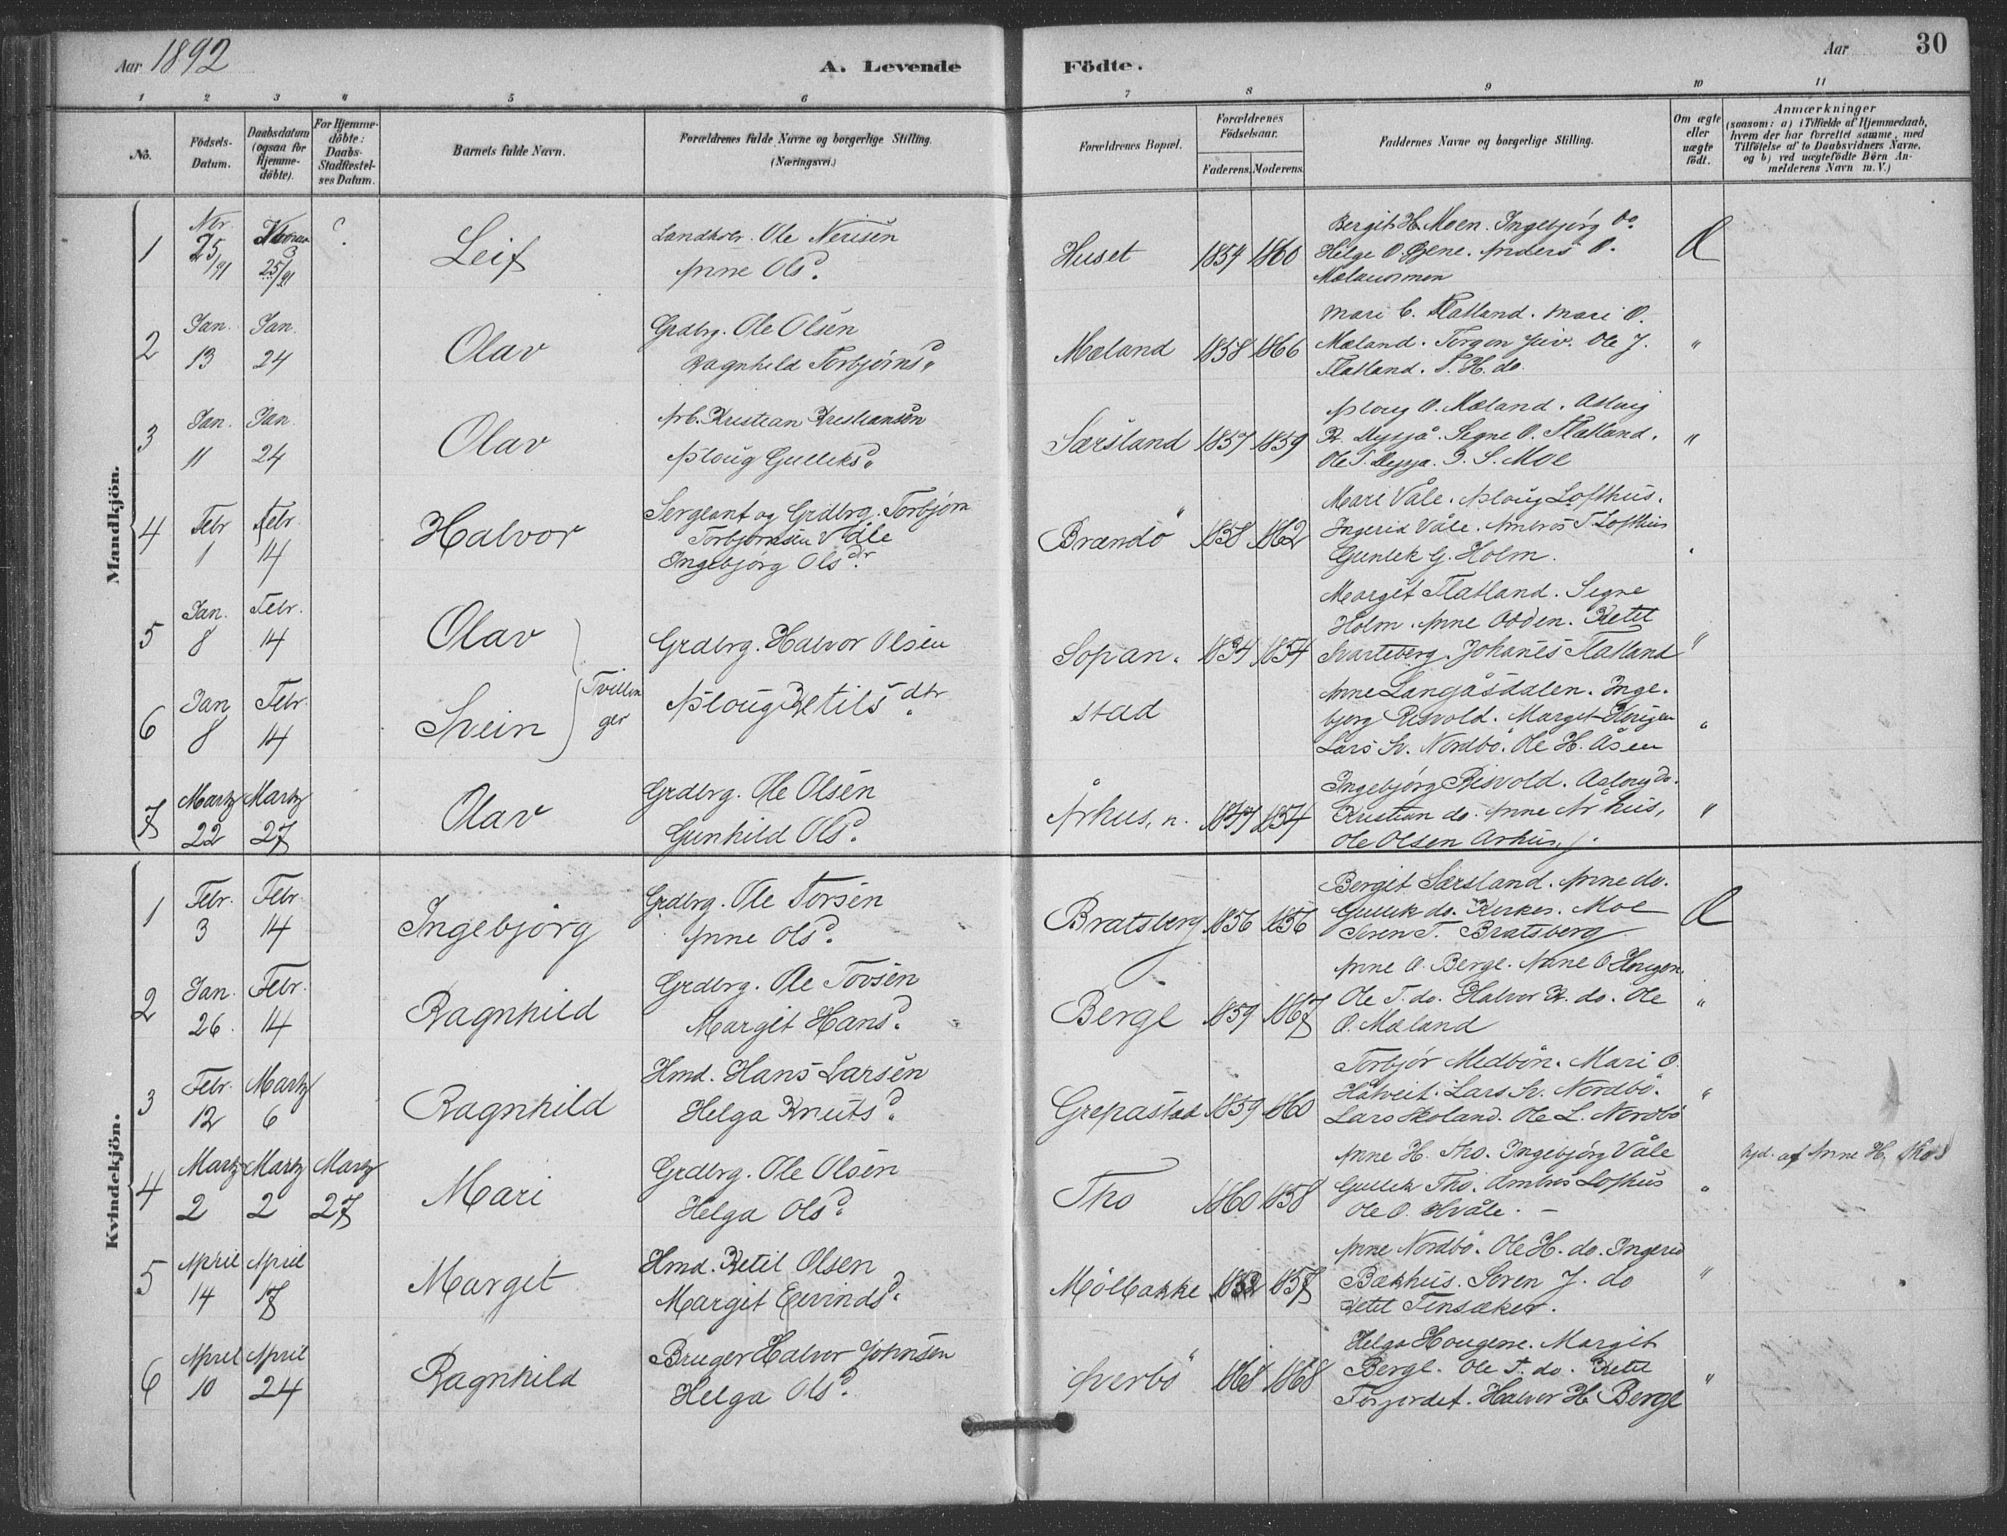 Aar 1892
A. Levende
Födte.
Aar
30
1 2 3 4 5 6 7 8 9 10 11
No.
Födsels-Datum.
Daabsdatum (ogsaa for Hjemmedöbte).
For Hjemmedöbte: Daabs-Stadfæstelses Datum.
Barnets fulde Navn.
Forældrenes fulde Navne og borgerlige Stilling. (Næringsvei.)
Forældrenes Bopæl.
Forældrenes Födselsaar.
Faderens. Moderens.
Faddernes Navne og borgerlige Stilling.
Om ægte eller uægte födt.
Anmærkninger
(saasom: a) i Tilfælde af Hjemmedaab, hvem der har forrettet samme, med Tilföielse af to Daabsvidners Navne, og b) ved uægtefödte Börn Anmelderens Navn m. V.)
Mandkjön.
1 Nbr 25/91 25/91 Leif
Landhdr. Ole Nerisen
Anne Olsd.
Huset 1854 1860
Bergit H. Moen. Ingebjørg do
Helge O. Anders O.
2 Jan. 13 Jan. 24 Olav
Grdbrg. Ole Olsen
Ragnhild Torbjørnsd.
Mæland 1858 1866
Mari C. Flatland. Mari O.
Mæland. Torgon Ole J.
Flatland. T. H. do.
"
3 Jan. 11 Jan. 24 Olav
Arb. Kristian Kristiansen
Aslaug Gulliks.
Særsland 1857 1859
Aslaug O. Mæland. Aslaug
Signe O. Flatland.
S. Moe
"
4 Febr 1 Febr. 14 Halvor
Sergeant og Grdbrg. Torbjørn
Torbjørnsen Våle
Ingebjørg Olsdr.
Brændö 1858 1862
Mari Våle. Aslaug Lofthus.
Ingerid Våle. Ambros T. Lofthus
Gunlek G. Holm.
5 Jan. 8 Febr. 14 Olav
6 Jan 8 Febr. 14 Svein
Tvillinger
Grdbrg. Halvor Olsen
Aslaug Ketilsdtr.
Sopanstad 1834 1854
Margit Flatland. Signe
Holm. Anne Obden. Ketil
Svarteberg. Johanes Flatland
"
Anne Langåsdalen. Ingebjørg Risvold. Margit Haugen
Lars Sv. Nordbö. Ole H. Åsen
"
7 Martz 22 Martz 27 Olav
Grdbrg. Ole Olsen
Gunhild Olsd.
Århus, n. 1847 1854
Ingebjørg Risvold. Aslaug do.
Kristian do. Anne Århus,
Ole Olsen Århus
"
Kvindekjön.
1 Febr. 3 Febr. 14 Ingebjørg
Grdbrg. Ole Torsen
Anne Olsd.
Bratsberg 1856 1856
Bergit Særsland. Anne do.
Gullik do. Moe
Søren T. Bratsberg
2 Jan. 26. Febr. 14 Ragnhild
Grdbrg. Ole Tovsen
Margit Hansd.
Berge 1859 1867
Anne O. Berge. Anne O. Haugen
Ole T. do. Halvor K. do. Ole
O. Mæland
"
3 Febr. 12 Martz 6 Ragnhild
Hmd. Hans Larsen
Helga Knutsd.
Grepastad 1859 1860
Torbjør Medbön. Mari O.
Håtveit. Lars Sv. Nordbö.
Lars Skoland. Ole L. Nordbö
"
4 Martz 2 Martz 2 Martz 27 Mari
Grdbrg. Ole Olsen
Helga Olsd.
Tho 1860 1858
Anne H. Tho. Ingebjørg Våle
Gullik Tho. Ambros Lofthus
Ole O. Hvåle.
"
Hjd. af Anne H.
5 April 14 April 17 Margit
Hmd. Ketil Olsen
Margit Eivindsd.
Mölbakke 1857
Anne Nordbö. Ole H. do. Ingerid
Bækhus. Soren J. do
Ketil Tinsæker.
"
6 April 10 April 24 Ragnhild
Bruger Halvor Johnsen
Helga Olsd.
Sverbö 1868 1868
Helga Hougene. Margit
Berge. Ole T. do. Ketil
Torjordet. Halvor H. Berge
"